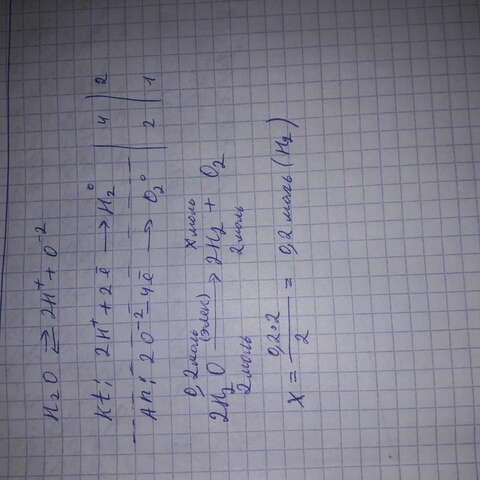 H₂O ⇄ 2H⁺ + O⁻²
Kt: 2H⁺ + 2ē → H₂⁰ | 4 | 2
An: 2O⁻² − 4ē → O₂⁰ | 2 | 1
0,2 моль х моль
2H₂O (элек)→ 2H₂ + O₂
2 моль 2 моль
X = 0,2·2 / 2 = 0,2 моль (H₂)